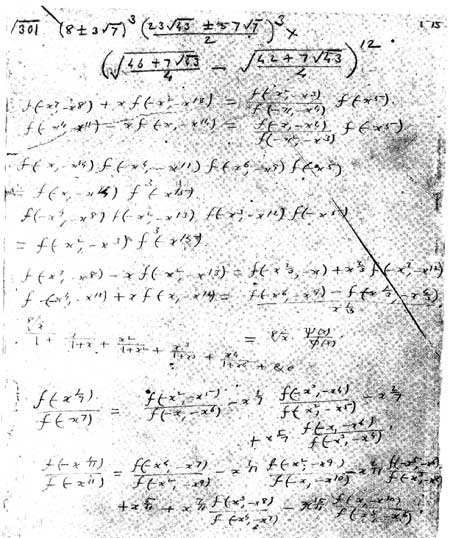 √301 (8 ± 3√7)^3 ((23√43 ± 57√7)/2)^3 ×
(√((46 + 7√43)/4) − √((42 + 7√43)/4))^12
f(-x^7, -x^8) + x f(-x^2, -x^13) = f(-x^2, -x^3)/f(-x, -x^4) f(-x^5).
f(-x^4, -x^11) − x f(-x, -x^14) = f(-x, -x^4)/f(-x^2, -x^3) f(-x^5)
f(-x, -x^14) f(-x^4, -x^11) f(-x^6, -x^9) f(-x^5)
= f(-x, -x^4) f^3(-x^15)
f(-x^7, -x^8) f(-x^2, -x^13) f(-x^3, -x^12) f(-x^5)
= f(-x^2, -x^3) f^3(-x^15).
f(-x^7, -x^8) − x f(-x^2, -x^13) = f(-x^2/3, -x) + x^2/3 f(-x^3, -x^12)
f(-x^4, -x^11) + x f(-x, -x^14) = (f(-x^6, -x^9) − f(-x^1/3, -x^4/3))/x^1/3
1 + 1 + x + 1 + x^2 + 1 + x^3 + + &c = ψ(x)/φ(x).
f(-x^1/7)/f(-x^7) = f(-x^2, -x^5)/f(-x, -x^6) − x^1/7 f(-x^3, -x^4)/f(-x^2, -x^5) − x^2/7
+ x^5/7 f(-x, -x^6)/f(-x^3, -x^4).
f(-x^1/11)/f(-x^11) = f(-x^4, -x^7)/f(-x^2, -x^9) − x^1/11 f(-x^2, -x^9)/f(-x, -x^10) − x^2/11 f(-x^5, -x^6)/f(-x^3, -x^8)
+ x^5/11 + x^7/11 f(-x^3, -x^8)/f(-x^4, -x^7) − x^15/11 f(-x, -x^10)/f(-x^5, -x^6).